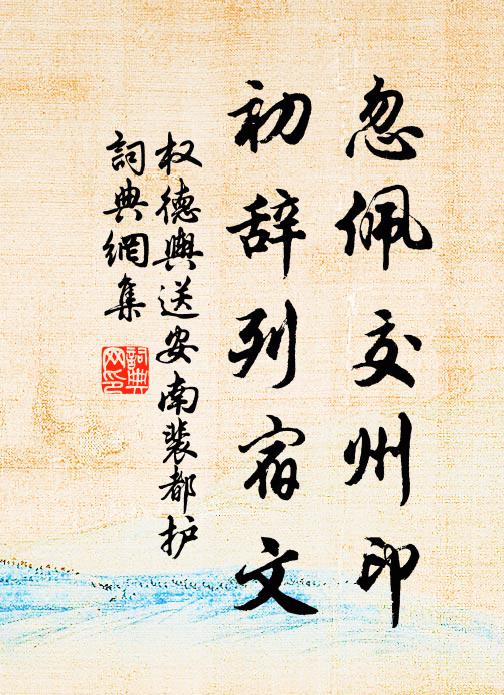 忽佩交州印
初辞列宿文
权德舆送安南裴都护
詞典網集
詞典網印